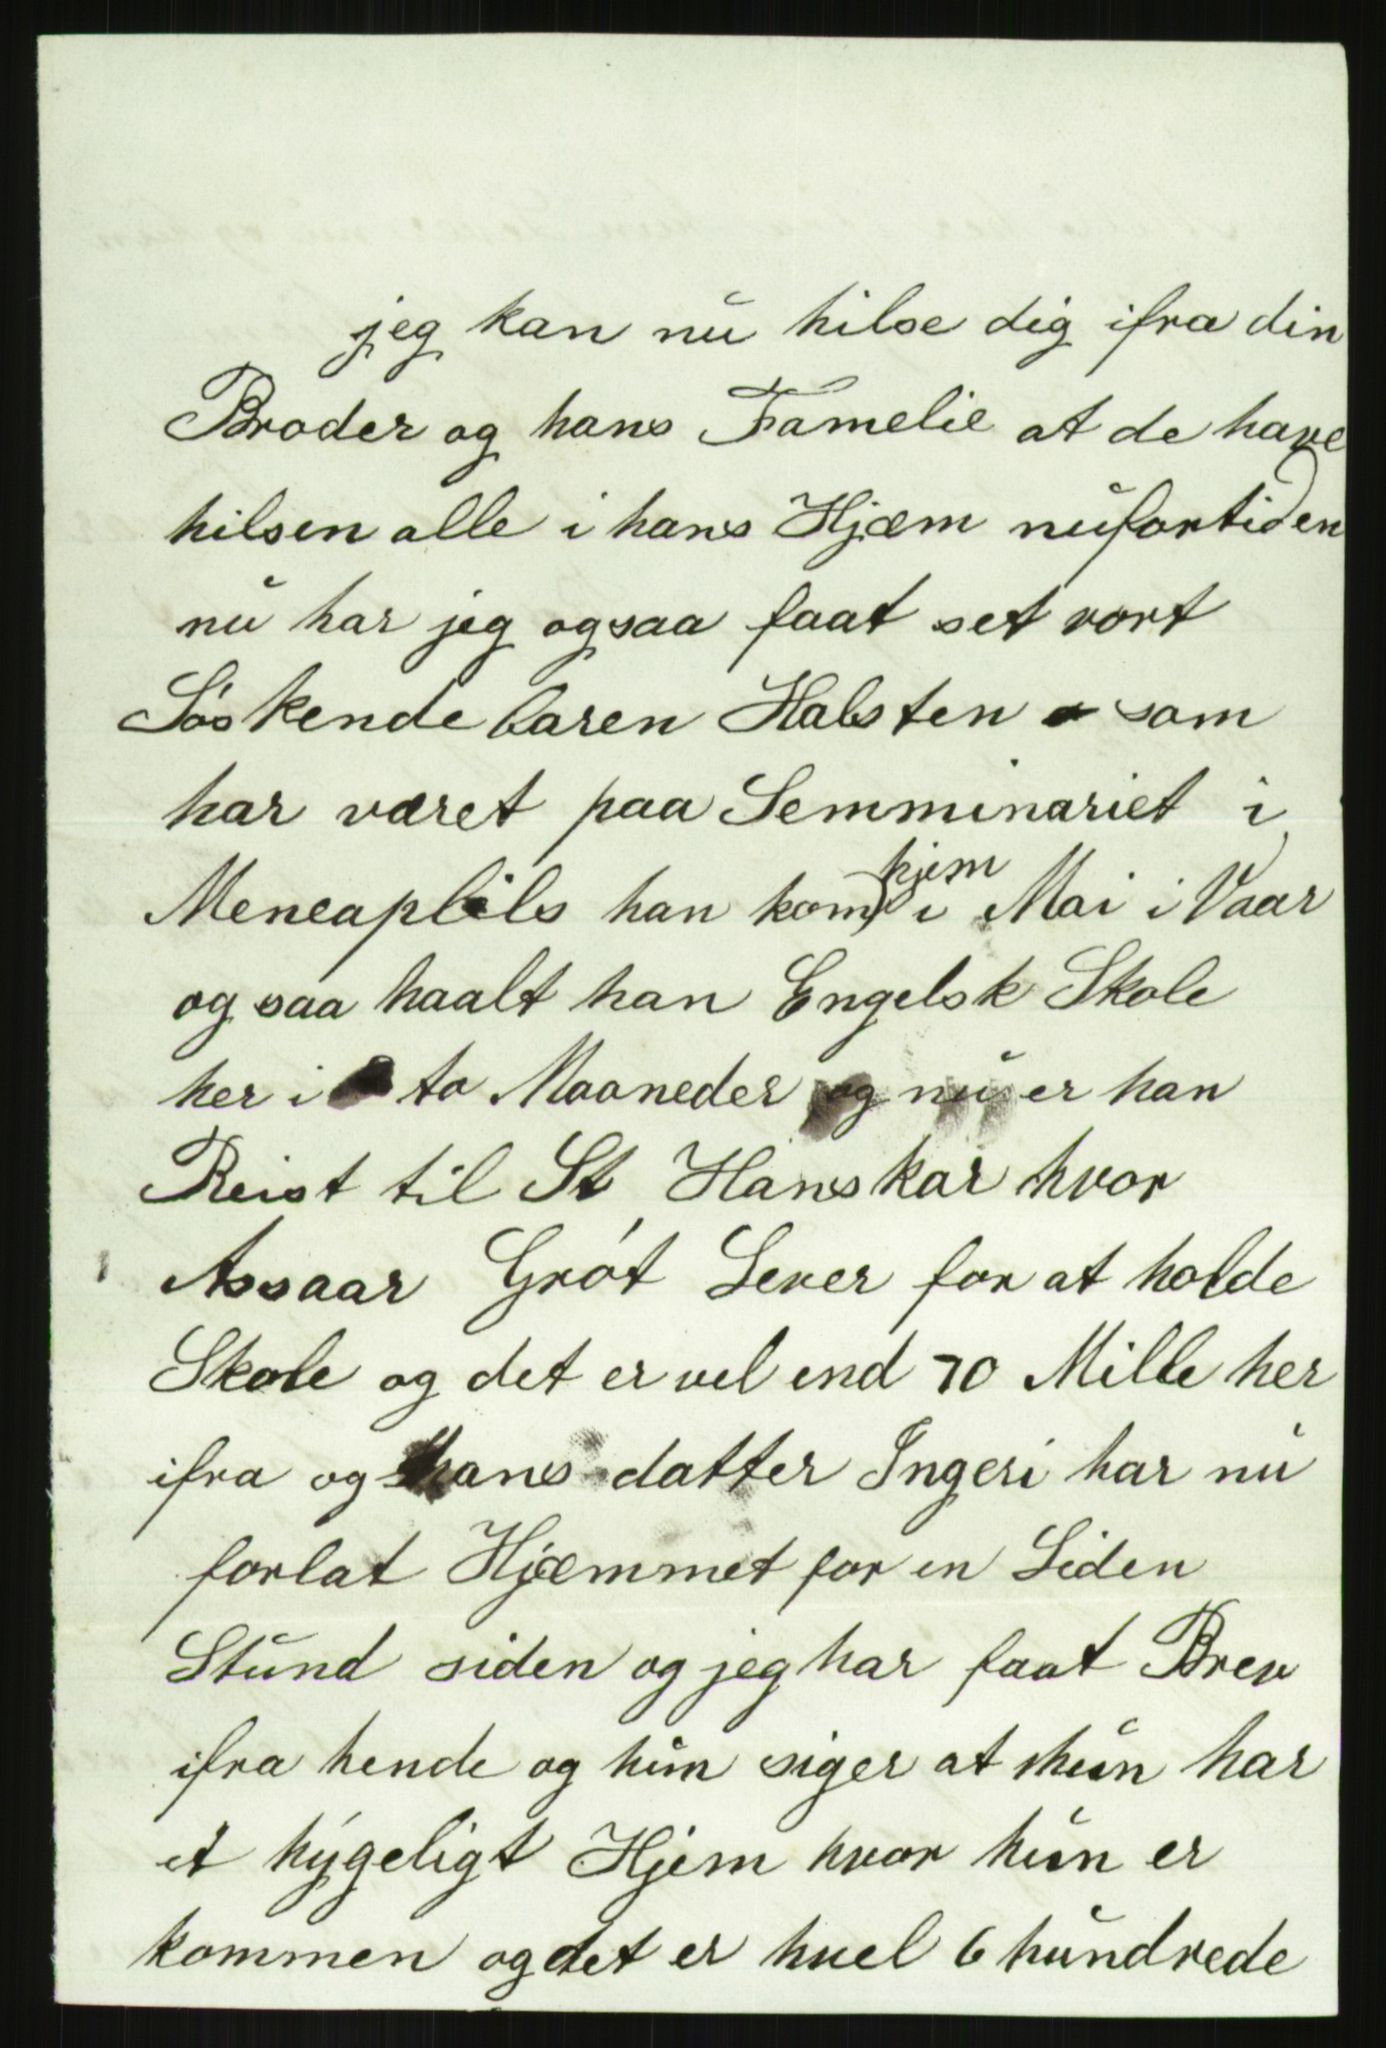 jeg kan nu hilse dig ifra din
Broder og hans Famelie at de have
hilsen alle i hans Hjæm nufortiden
nu har jeg ogsaa faat set vort
Søskendebaren Halsten som
har været paa Semminariet i
Meneaplils han kom hjem i Mai i Vaar
og saa haalt han Engelsk Skole
her i to Maaneder og nu er han
Reist til St Hanskar hvor
Assaar Grøt Lever for at holde
Skole og det er vel end 70 Mille her
ifra og hans datter Ingeri har nu
forlat Hjæmmet for en Liden
Stund siden og jeg har faat Brev
ifra hende og hun siger at hun har
et hygeligt Hjem hvor hun er
kommen og det er hvel 6 hundrede